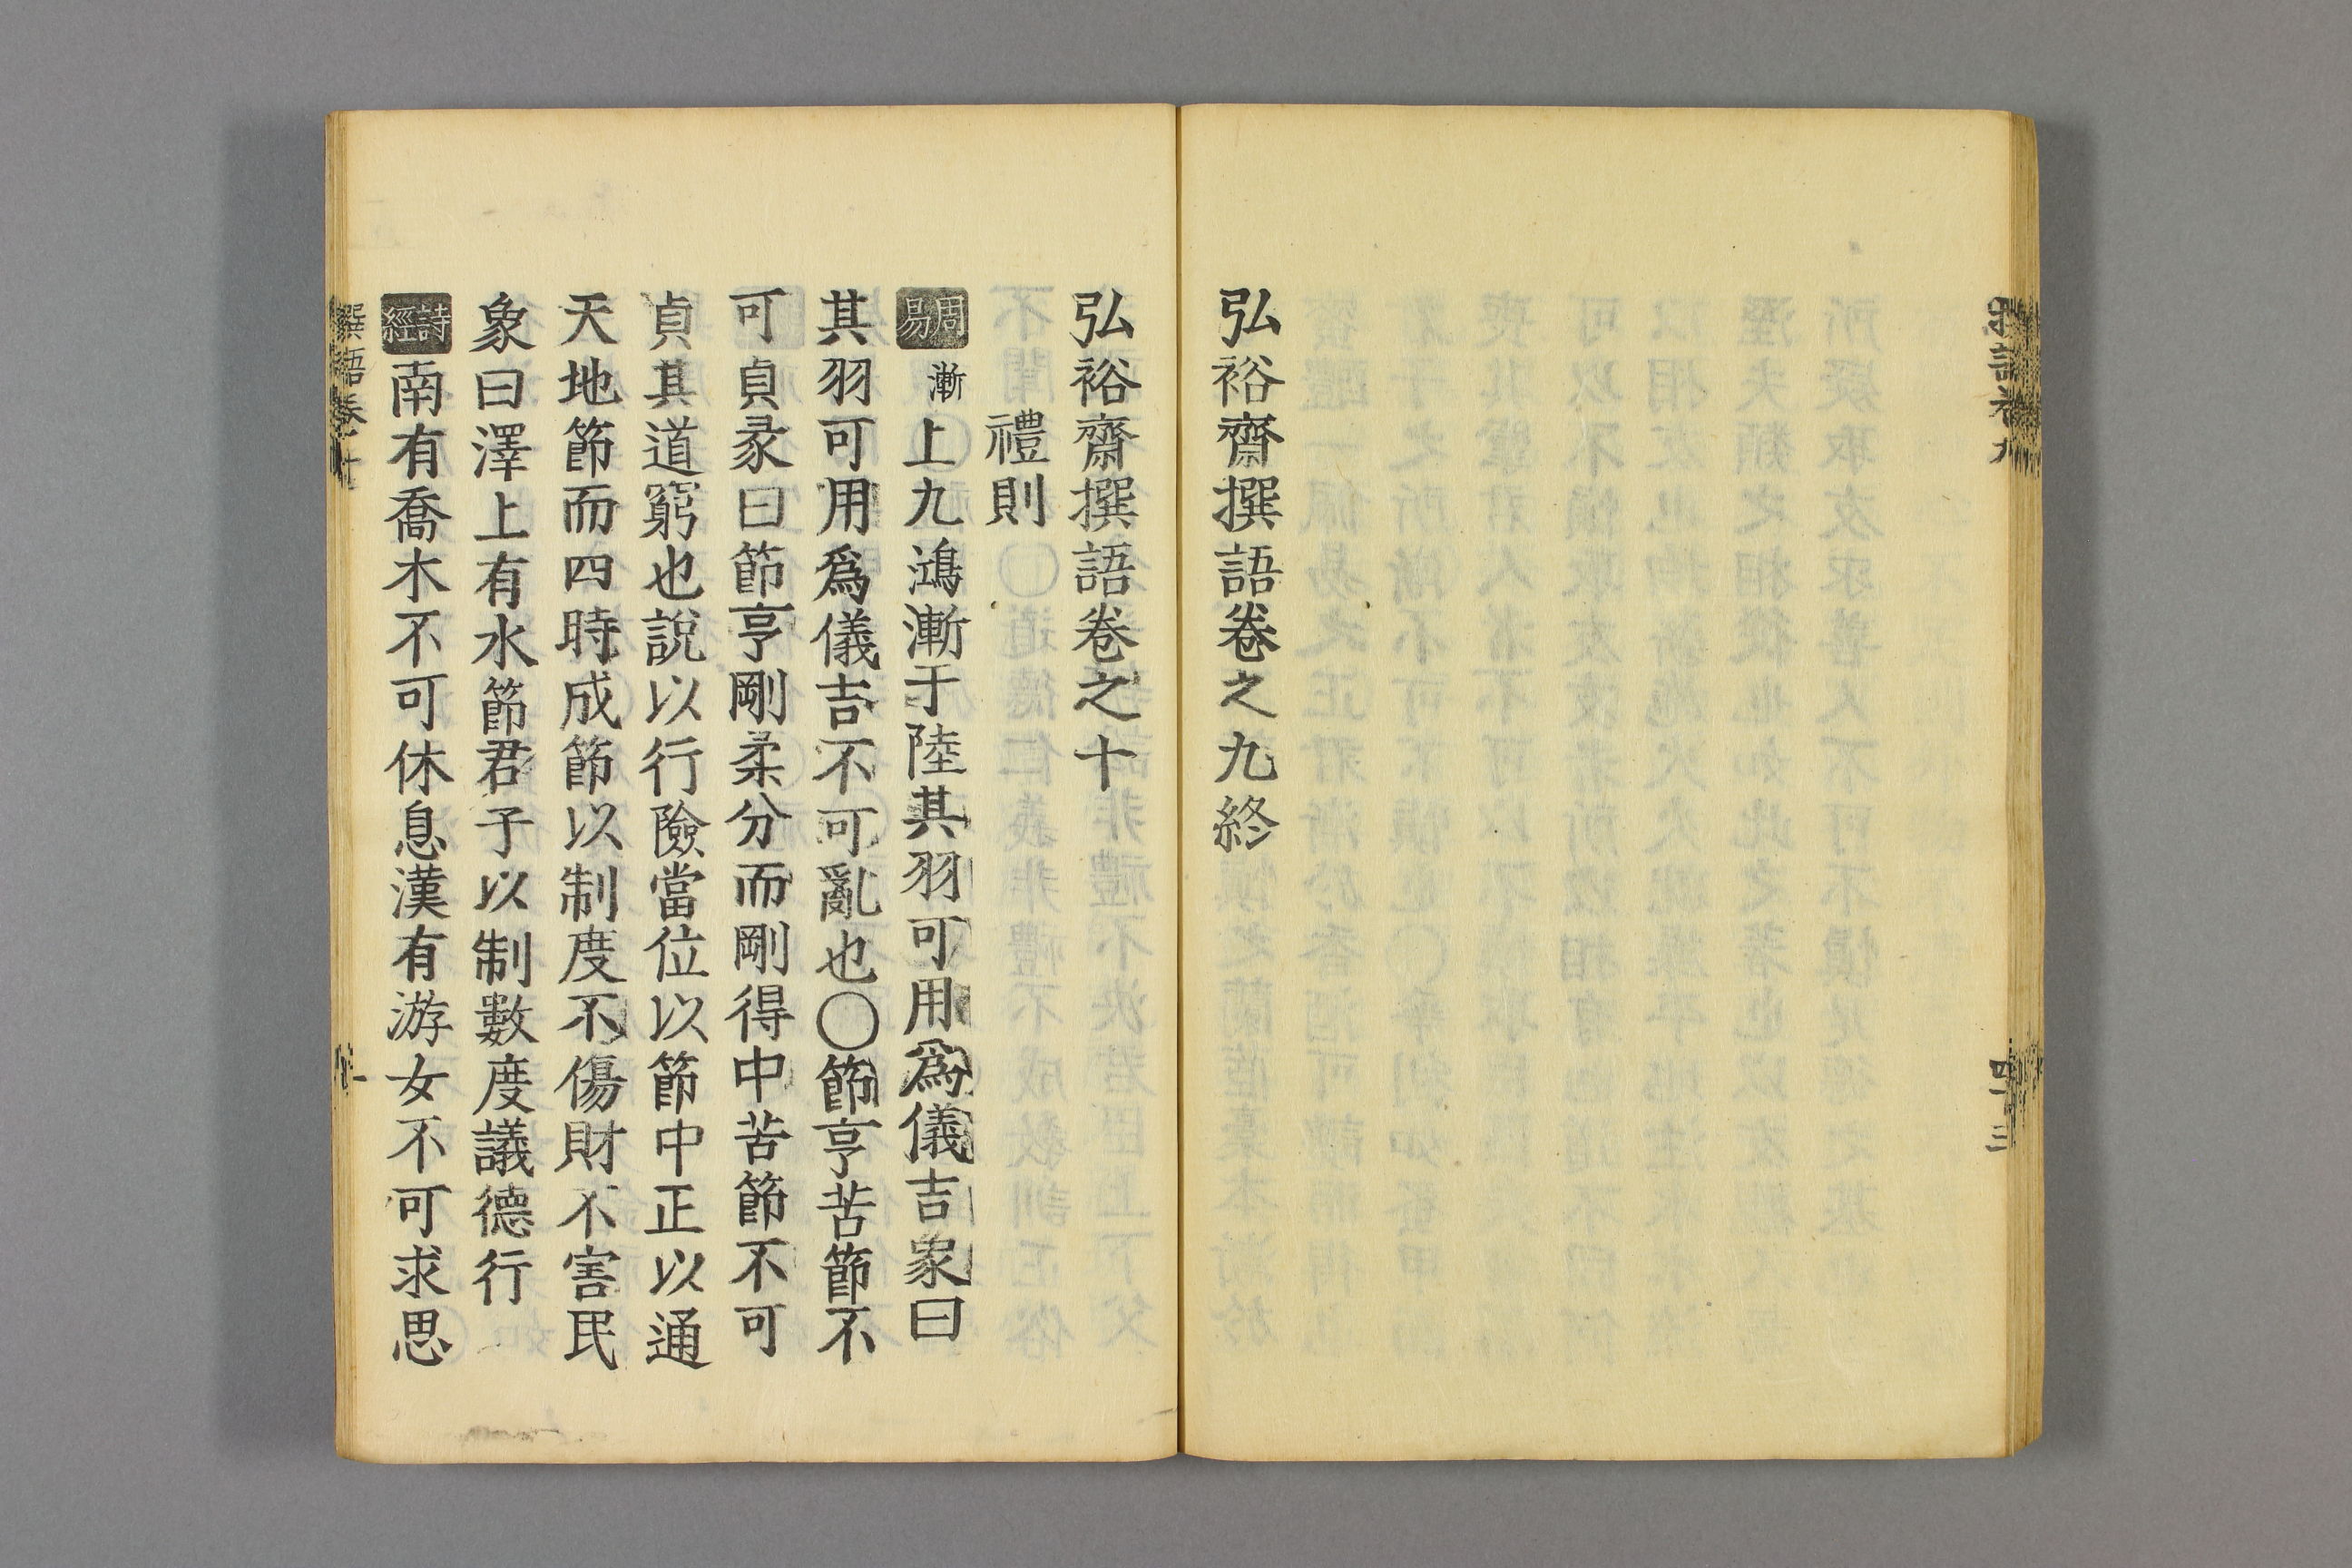 弘裕齋撰語卷之九終
弘裕齋撰語卷之十
禮則
周易 漸 上九鴻漸于陸其羽可用爲儀吉象曰
其羽可用爲儀吉不可亂也〇節亨苦節不
可貞彖曰節亨剛柔分而剛得中苦節不可
貞其道窮也說以行險當位以節中正以通
天地節而四時成節以制度不傷財不害民
象曰澤上有水節君子以制數度議德行
詩經 南有喬木不可休息漢有游女不可求思
撰語卷十
一